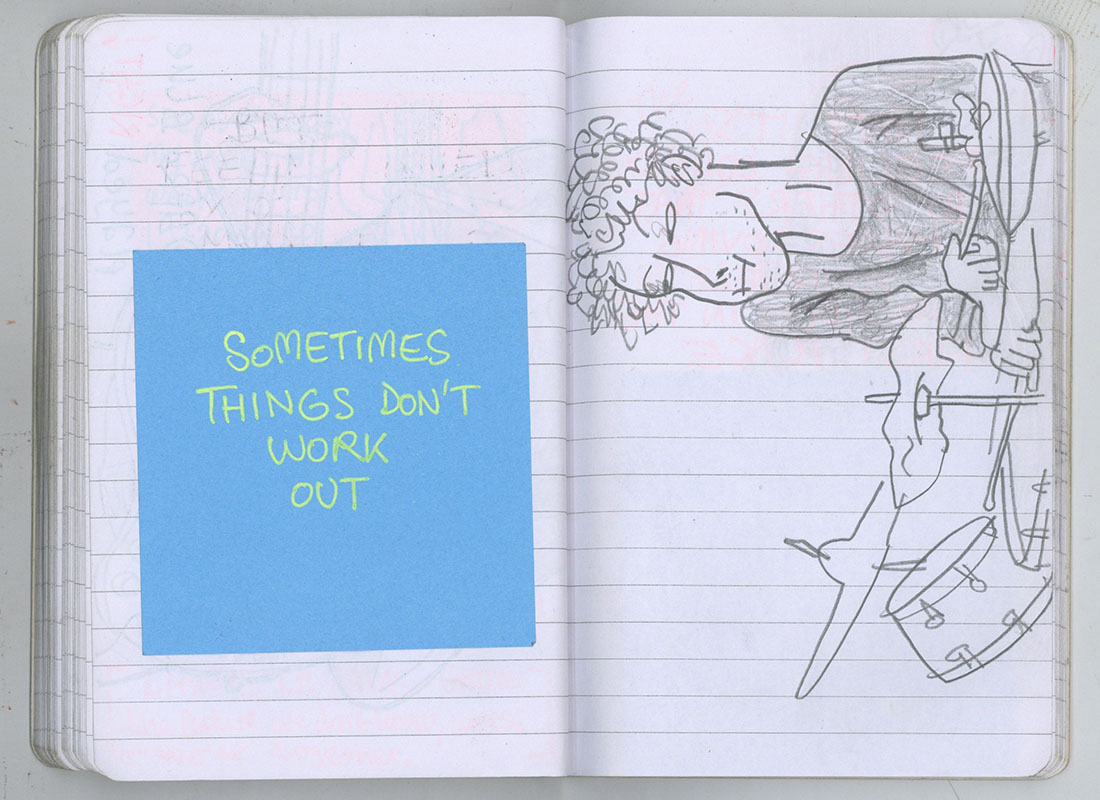 SOMETIMES
THINGS DON'T
WORK
OUT